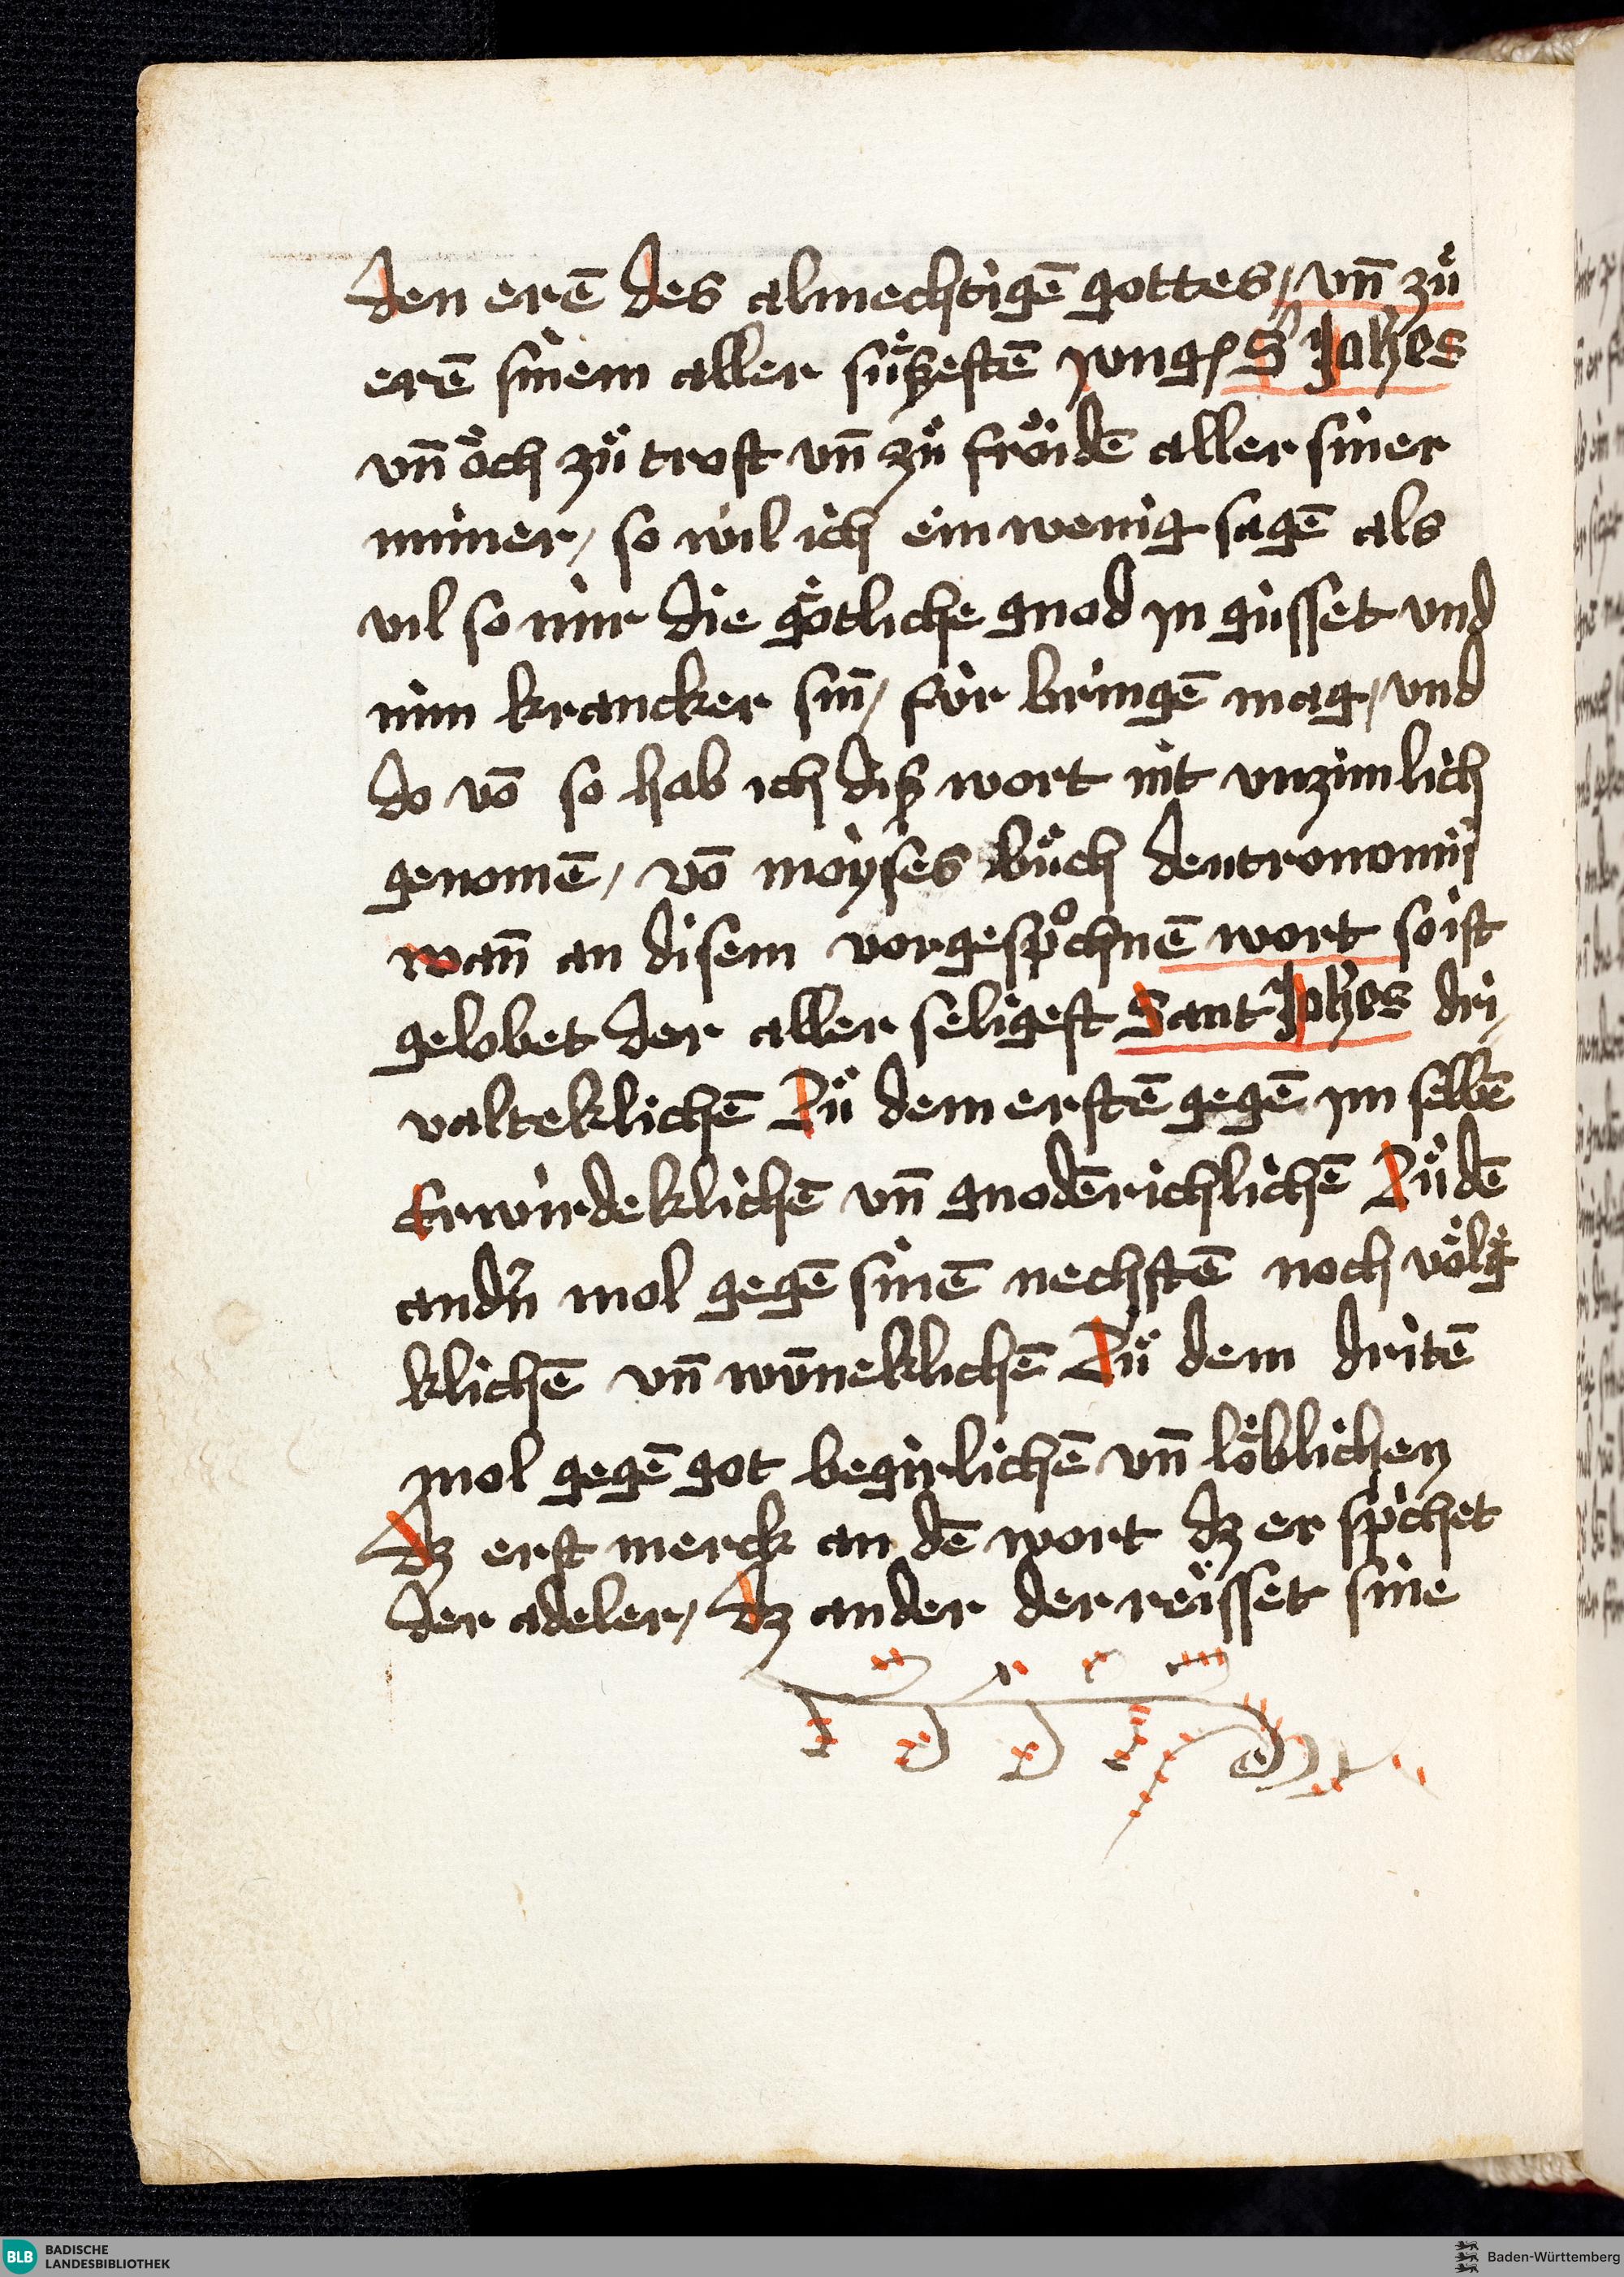 den erē des almechtigē gottes / vn̄ zů
erē sinem aller süßestē jungʼ Sʼ Joh̄es
vn̄ öch zů trost vn̄ zů fröidē aller siner
minner / so wil ich ein wenig sagē als
vil so mir die götliche gnod jn güsset vnd
min krancker sin̄ / für bringē mag / vnd
do vō so hab ich diß wort nit vnzimlich
genomē / vō moyses bůch deutronomij
wan̄ an disem vorgespͦchnē wort so ist
gelobet der aller seligest Sant Joh̄es dri /
valteklichē Zů dem erstē gegē jm selbē
Erwirdeklichē vn̄ gnodērichlichē Zů dē
andn̄ mol gegē sinē nechstē noch völg
klichē vn̄ wūneklichē Zů dem dritē
mol gegē got begirlichē vn̄ löblichen
Dz erst merck an dē wort dz er spͥchet
der adeler / dz ander der reisset sine
BLB BADISCHE
LANDESBIBLIOTHEK
Baden-Württemberg